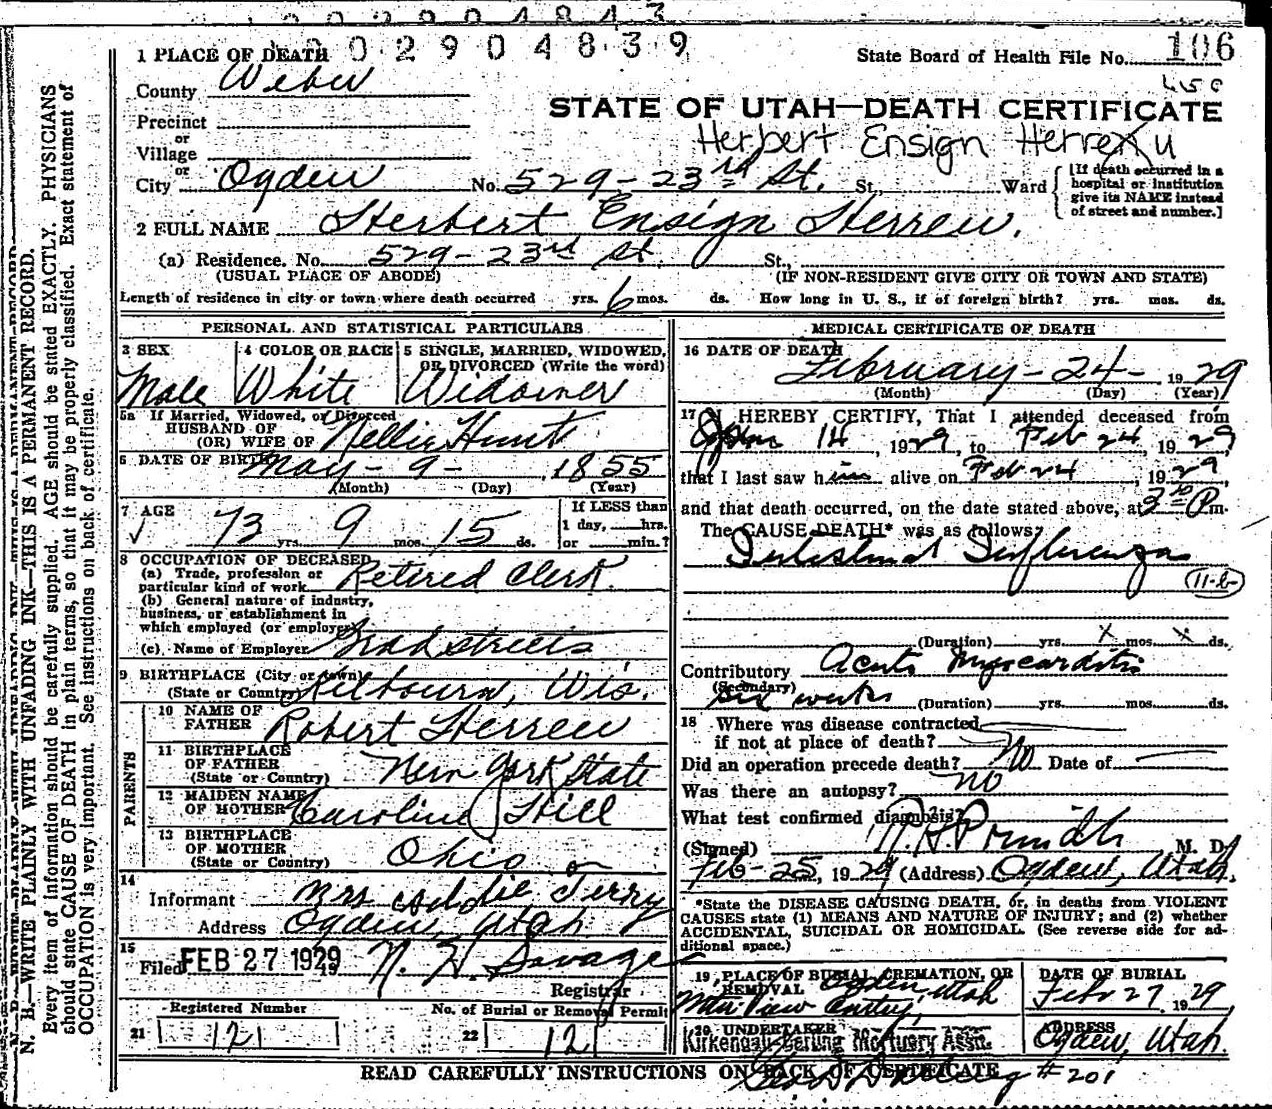 0 0 2 9 0 4 8 4 3
0 0 2 9 0 4 8 3 9
1 PLACE OF DEATH
State Board of Health File No. 106
County Weber
STATE OF UTAH—DEATH CERTIFICATE
Precinct
Herbert Ensign Herrew
or
Village
or
City Ogden No. 529-23rd St. St., Ward
[If death occurred in a hospital or institution give its NAME instead of street and number.]
2 FULL NAME Herbert Ensign Herrew.
(a) Residence. No. 529-23rd St. St.,
(USUAL PLACE OF ABODE) (IF NON-RESIDENT GIVE CITY OR TOWN AND STATE)
Length of residence in city or town where death occurred yrs. 6 mos. ds. How long in U. S., if of foreign birth? yrs. mos. ds.
PERSONAL AND STATISTICAL PARTICULARS
3 SEX
Male
4 COLOR OR RACE
White
5 SINGLE, MARRIED, WIDOWED,
OR DIVORCED (Write the word)
Widower
5a If Married, Widowed, or Divorced
HUSBAND OF
(OR) WIFE OF Nellie Hunt
6 DATE OF BIRTH May-9-1855
(Month) (Day) (Year)
7 AGE
73 yrs. 9 mos. 15 ds.
If LESS than
1 day, hrs.
or min.?
8 OCCUPATION OF DECEASED
(a) Trade, profession or
particular kind of work Retired Clerk.
(b) General nature of industry,
business, or establishment in
which employed (or employer)
(c) Name of Employer Bradstreets
9 BIRTHPLACE (City or town)
(State or Country) Kilbourn, Wis.
PARENTS
10 NAME OF
FATHER Robert Herrew
11 BIRTHPLACE
OF FATHER
(State or Country) New York State
12 MAIDEN NAME
OF MOTHER Caroline Hill
13 BIRTHPLACE
OF MOTHER
(State or Country) Ohio
14
Informant Mrs Addie Terry
Address Ogden, Utah
15
Filed FEB 27 1929 N. H. Savage
Registrar
Registered Number
21 121
No. of Burial or Removal Permit
22 121
MEDICAL CERTIFICATE OF DEATH
16 DATE OF DEATH
February-24-1929
(Month) (Day) (Year)
17 I HEREBY CERTIFY, That I attended deceased from
Jan 14, 1929, to Feb 24, 1929
that I last saw him alive on Feb 24, 1929
and that death occurred, on the date stated above, at 3 P m.
The CAUSE DEATH* was as follows:
Intestinal Influenza
11-b
(Duration) yrs. x mos. x ds.
Contributory Acute Myocarditis
(Secondary)
six weeks (Duration) yrs. mos. ds.
18 Where was disease contracted
if not at place of death?
Did an operation precede death? No Date of
Was there an autopsy? No
What test confirmed diagnosis?
(Signed) M. D.
Feb-25, 1929 (Address) Ogden, Utah.
*State the DISEASE CAUSING DEATH, or, in deaths from VIOLENT
CAUSES state (1) MEANS AND NATURE OF INJURY; and (2) whether
ACCIDENTAL, SUICIDAL OR HOMICIDAL. (See reverse side for ad-
ditional space.)
19 PLACE OF BURIAL, CREMATION, OR
REMOVAL Ogden, Utah
Mtn View Cemtry,
DATE OF BURIAL
Feb 27 1929
20 UNDERTAKER
Kirkendall-Derling Mortuary Assn.
ADDRESS
Ogden, Utah.
#201
READ CAREFULLY INSTRUCTIONS ON BACK OF CERTIFICATE
N. B.—WRITE PLAINLY WITH UNFADING INK—THIS IS A PERMANENT RECORD.
Every item of information should be carefully supplied. AGE should be stated EXACTLY. PHYSICIANS
should state CAUSE OF DEATH in plain terms, so that it may be properly classified. Exact statement of
OCCUPATION is very important. See instructions on back of certificate.